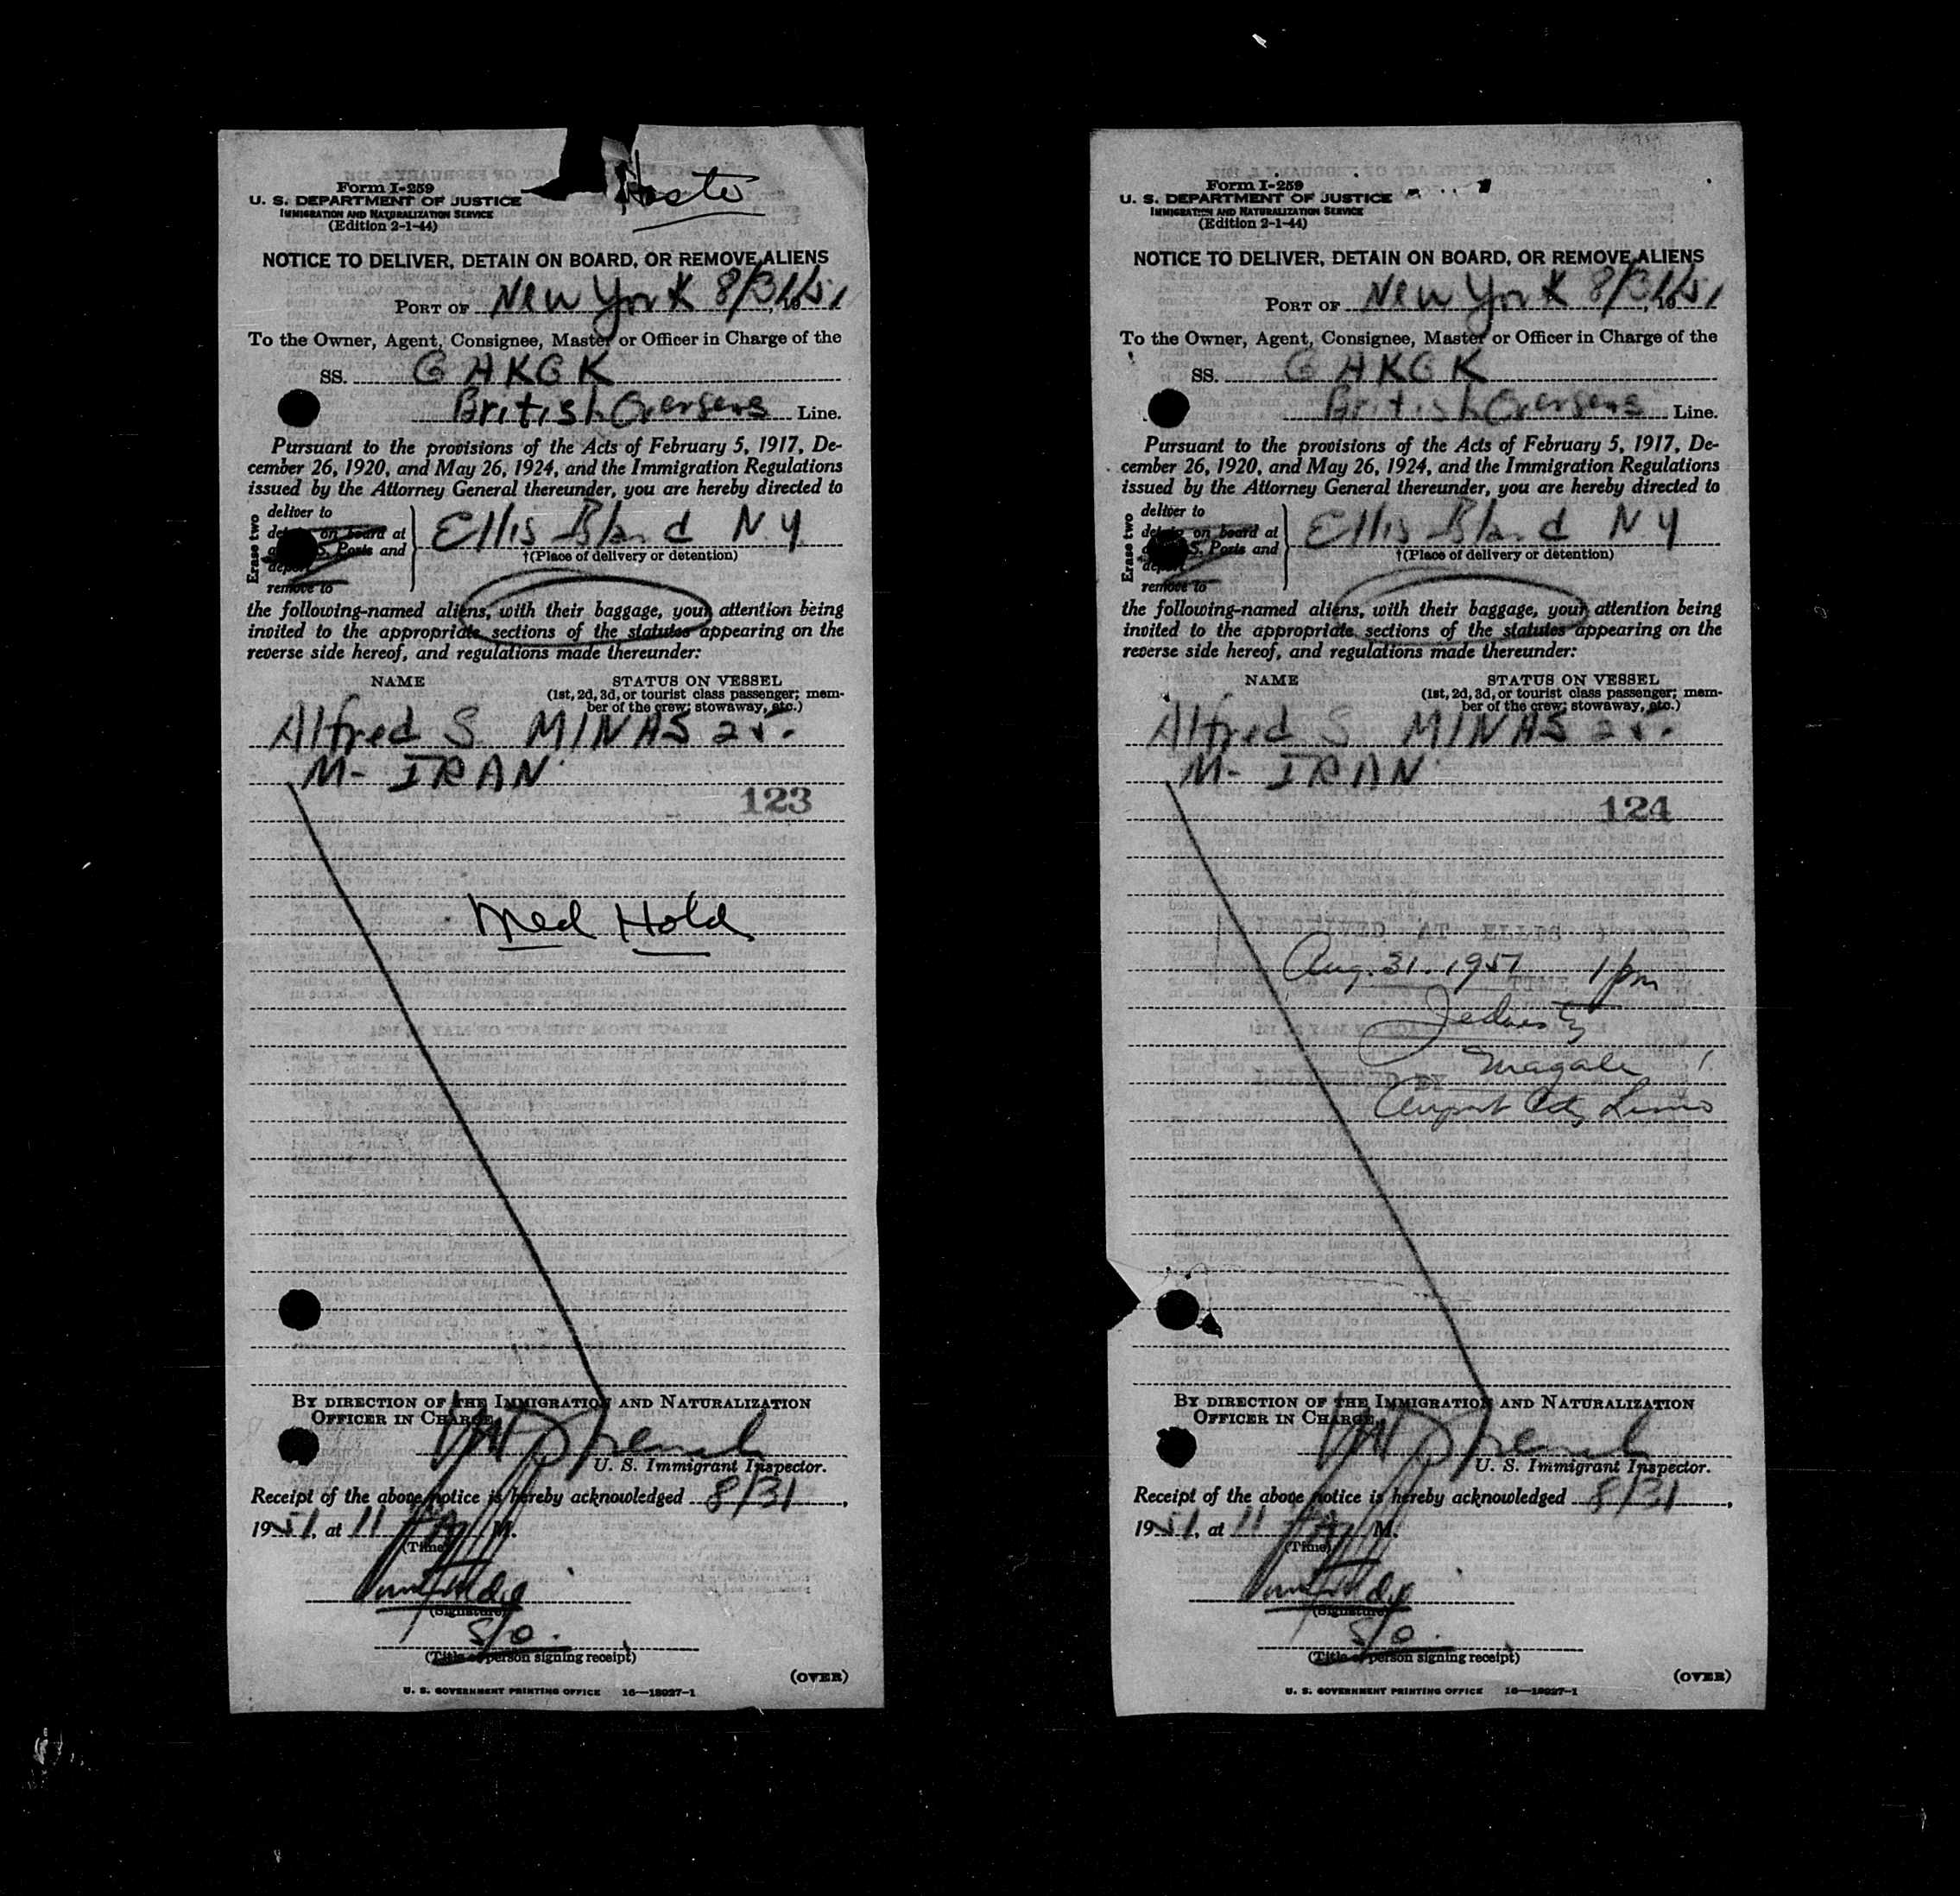 Haste
Form I-259
U. S. DEPARTMENT OF JUSTICE
IMMIGRATION AND NATURALIZATION SERVICE
(Edition 2-1-44)
NOTICE TO DELIVER, DETAIN ON BOARD, OR REMOVE ALIENS
PORT OF New York 8/31/51, 19
To the Owner, Agent, Consignee, Master or Officer in Charge of the
SS. G AKGK
British Overseas Line.
Pursuant to the provisions of the Acts of February 5, 1917, De-
cember 26, 1920, and May 26, 1924, and the Immigration Regulations
issued by the Attorney General thereunder, you are hereby directed to
Erase two
deliver to
detain on board at
U. S. Ports and
deport
remove to
Ellis Island N.Y.
†(Place of delivery or detention)
the following-named aliens, with their baggage, your attention being
invited to the appropriate sections of the statutes appearing on the
reverse side hereof, and regulations made thereunder:
NAME STATUS ON VESSEL
(1st, 2d, 3d, or tourist class passenger; mem-
ber of the crew; stowaway, etc.)
Alfred S MINAS 25.
M- IRAN
123
Med Hold
BY DIRECTION OF THE IMMIGRATION AND NATURALIZATION
OFFICER IN CHARGE
U. S. Immigrant Inspector.
Receipt of the above notice is hereby acknowledged 8/31,
1951, at 11 A M.
(Time)
(Signature)
S/O.
(Title of person signing receipt)
(OVER)
U. S. GOVERNMENT PRINTING OFFICE 16—18027-1
Form I-259
U. S. DEPARTMENT OF JUSTICE
IMMIGRATION AND NATURALIZATION SERVICE
(Edition 2-1-44)
NOTICE TO DELIVER, DETAIN ON BOARD, OR REMOVE ALIENS
PORT OF New York 8/31/51, 19
To the Owner, Agent, Consignee, Master or Officer in Charge of the
SS. G AKGK
British Overseas Line.
Pursuant to the provisions of the Acts of February 5, 1917, De-
cember 26, 1920, and May 26, 1924, and the Immigration Regulations
issued by the Attorney General thereunder, you are hereby directed to
Erase two
deliver to
detain on board at
U. S. Ports and
deport
remove to
Ellis Island N.Y
†(Place of delivery or detention)
the following-named aliens, with their baggage, your attention being
invited to the appropriate sections of the statutes appearing on the
reverse side hereof, and regulations made thereunder:
NAME STATUS ON VESSEL
(1st, 2d, 3d, or tourist class passenger; mem-
ber of the crew; stowaway, etc.)
Alfred S MINAS 25.
M- IRAN
124
Aug. 31. 1951 1 pm
Magale
Airport City Limo
BY DIRECTION OF THE IMMIGRATION AND NATURALIZATION
OFFICER IN CHARGE
U. S. Immigrant Inspector.
Receipt of the above notice is hereby acknowledged 8/31,
1951, at 11 A M.
(Time)
(Signature)
S/O.
(Title of person signing receipt)
(OVER)
U. S. GOVERNMENT PRINTING OFFICE 16—18027-1